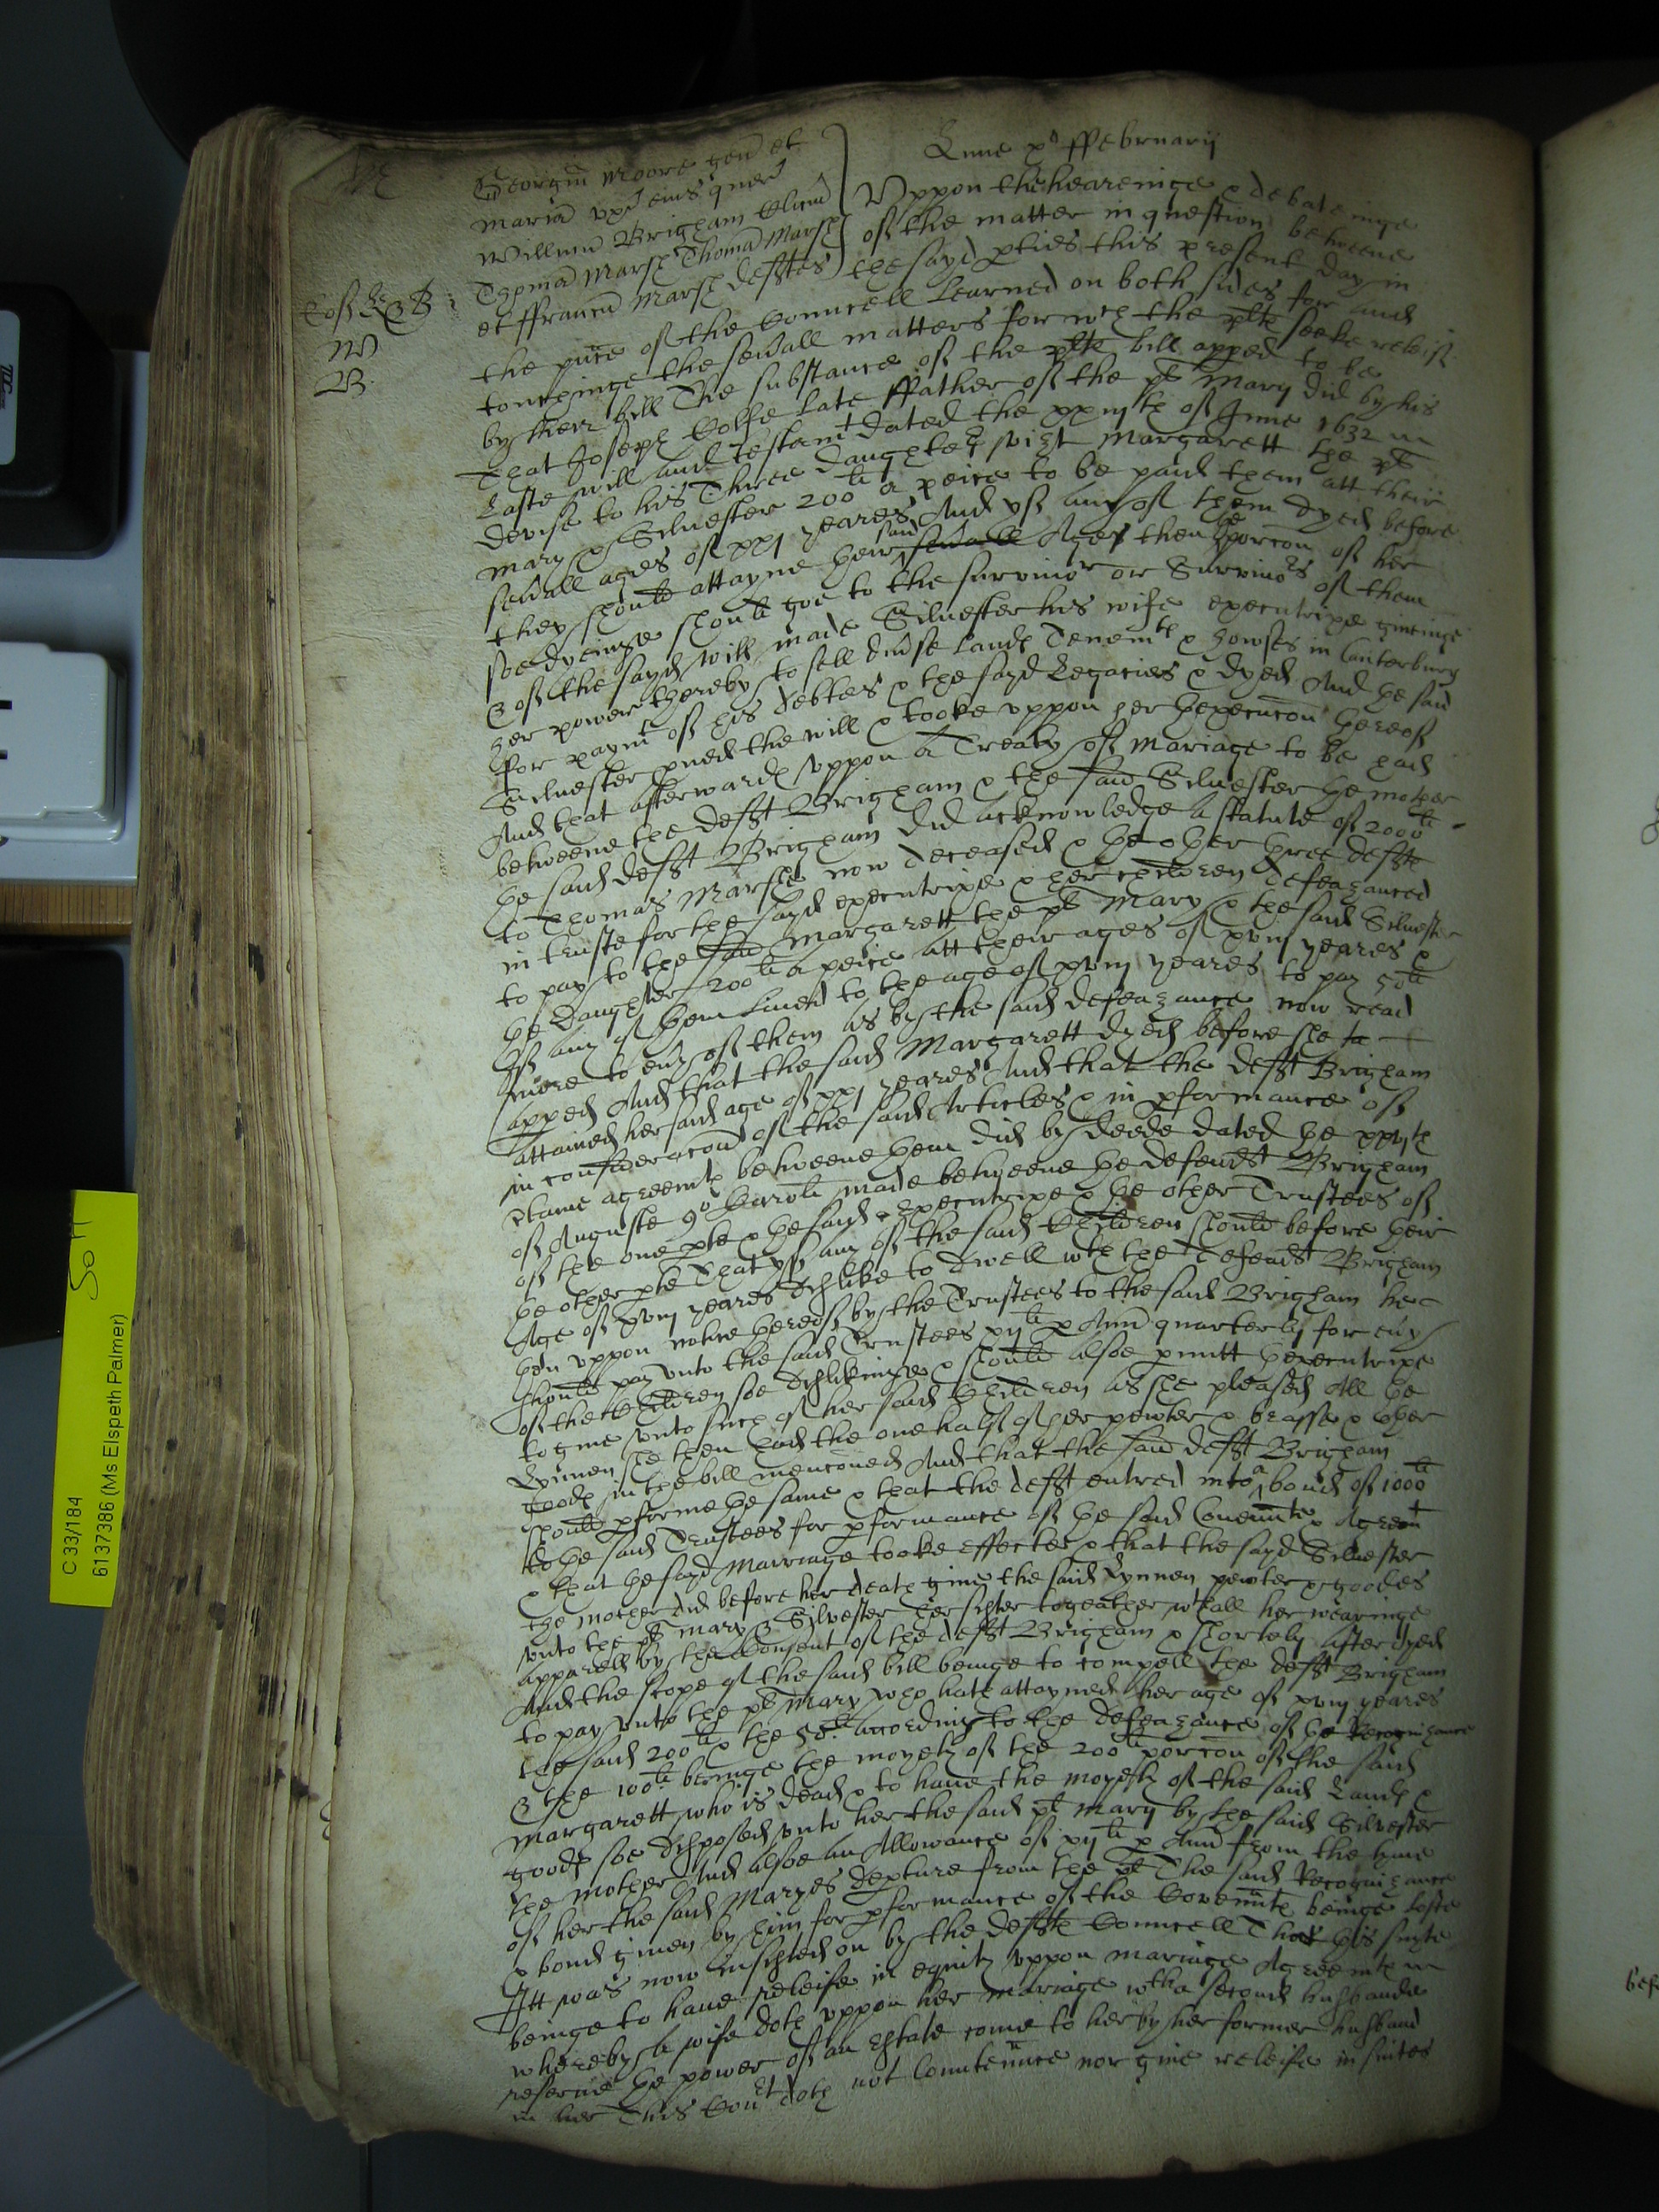 Georgiu Moore gen et
Maria vxr eius quer
Willmu Brigham Clicu
Thoma Marsh Thoma Marsh
et ffrancu Marsh defftes
Lune xo ffebruarij
Vppon the heareinge & debateinge
of the matter in question betweene
the sayd pties this present day in
the pnce of the Councell Learned on both sides for and
concʼninge the seuall matters for wch the plte seeke releif
by their bill The substance of the plte bill apped to be
That Joseph Colfe late ffather of the plt Mary did by his
Laste will and testamt dated the xxiijth of June 1632
devise to his Three daughters vizt Margarett the plt
Mary & Siluester 200li a peice to be paid them att their
seuall ages of xxj yeares And yf any of them dyed before
they should attayne their said seuall Ages then the porcon of her
soe dyeinge should goe to the survivor or Survivors of them
& of the sayd will made Siluester his wife executrixe giueinge
her power thereby to sell diuse Lands Tenemts & howses in Canterbury
for paymt of his debtes & the sayd Legacies & dyed And the said
Siluester pued the will & tooke vppon her thexecucon thereof
And that afterwards vppon a Treaty of Mariage to be had
betweene the defft Brigham & the said Siluester the mother
the said defft Brigham did acknowledge a statute of 2000li
to Thomas Marshe now deceased & the other three deffts
in truste for the sayd executrixe & her children defeazanced
to pay to the said Margarett the plt Mary & the said Siluester
the Daughter 200li a peice att their ages of xviij yeares &
If any of them Liued to the age of xviij yeares to pay 50li
more to euy of them as by the said defeazance now read
apped And that the said Margarett dyed before she
attained her said age of xxj yeares And that the defft Brigham
in consideracon of the said Articles & in pformance of
agreemts betweene them did by deede dated the
of Auguste 9o Caroli made betweene the defendt Brigham
of the one pte & the said Executrixe & the other Trustees of
the other pte That yf any of the said Children should before their
Age of xviij yeares dislike to dwell wth the Defendt Brigham
then vppon notice thereof by the Trustees to the said Brigham he
should pay vnto the said Trustees xijli p Ann quarterly for euy
of the Children soe dislikinge & should alsoe pmitt thexecutrixe
to giue vnto such of her said Children as she pleased All the
Lynnen she then had the one halfe of her pewter & brasse & other
goods in the bill mencioned And that the said defft Brigham
should pforme the same & that the defft entred into a bond of 1000li
to the said Trustees for pformance of the said Couennts & Agreemt
& that the sayd Marriage tooke effecte & that the sayd Siluester
the mother did before her death giue the said Lynnen pewter & goodes
vnto the plt Mary & Siluester her sister togeather wth all her weareinge
apparell by the Consent of the defft Brigham & shortely after dyed
And the scope of the said bill beinge to compell the defft Brigham
to pay vnto the plt Mary who hath attayned her age of xviij yeares
the said 200li & the 50li according to the defeazance of the Recognizance
& the 100li beinge the moyety of the 200li porcon of the said
Margarett who is dead & to haue the moyety of the said Lands &
goods soe disposed vnto her the said plt Mary by the said Siluester
the mother And alsoe an Allowance of xijli p Ann from the tyme
of her the said Maryes depture from the plt The said Recognizance
& bond giuen by him for pformance of the Covennts beinge loste
Itt was now insisted on by the deffts Councell That this suyte
beinge to haue releife in equity vppon mariage Agreemts
whereby a wife doth vppon her mariage wth a second husbande
reserue the power of an estate come to her by her former husband
in her This Court doth not Countennce nor giue releife in suites
C 33/184
6137386 (Ms Elspeth Palmer)